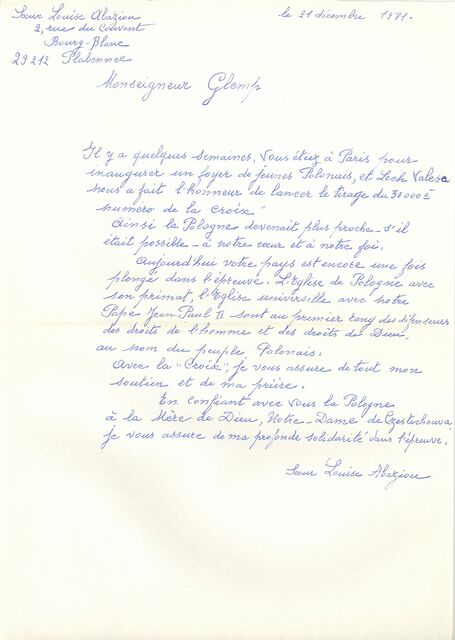 Sœur Louise Abaziou
le 21 décembre 1981.
2, rue du Couvent
Bourg-Blanc
29212 Plabennec
Monseigneur Glemp
Il y a quelques semaines, Vous étiez à Paris pour
inaugurer un foyer de jeunes Polonais, et Lech Valesa
nous a fait l'honneur de lancer le tirage du 30 000 è
numéro de la Croix"
Ainsi la Pologne devenait plus proche s'il
était possible - à notre cœur et à notre foi.
Aujourdhui votre pays est encore une fois
plongé dans l'épreuve. L'Eglise de Pologne avec
son primat, l'Eglise universelle avec notre
Pape Jean-Paul II sont au premier rang des défenseurs
des droits de l'homme et des droits de Dieu,
au nom du peuple Polonais.
Avec la "Croix", je vous assure de tout mon
soutien et de ma prière.
En confiant avec Vous la Pologne
à la Mère de Dieu, Notre-Dame de Czestochowa,
je vous assure de ma profonde solidarité dans l'épreuve.
Sœur Louise Abaziou